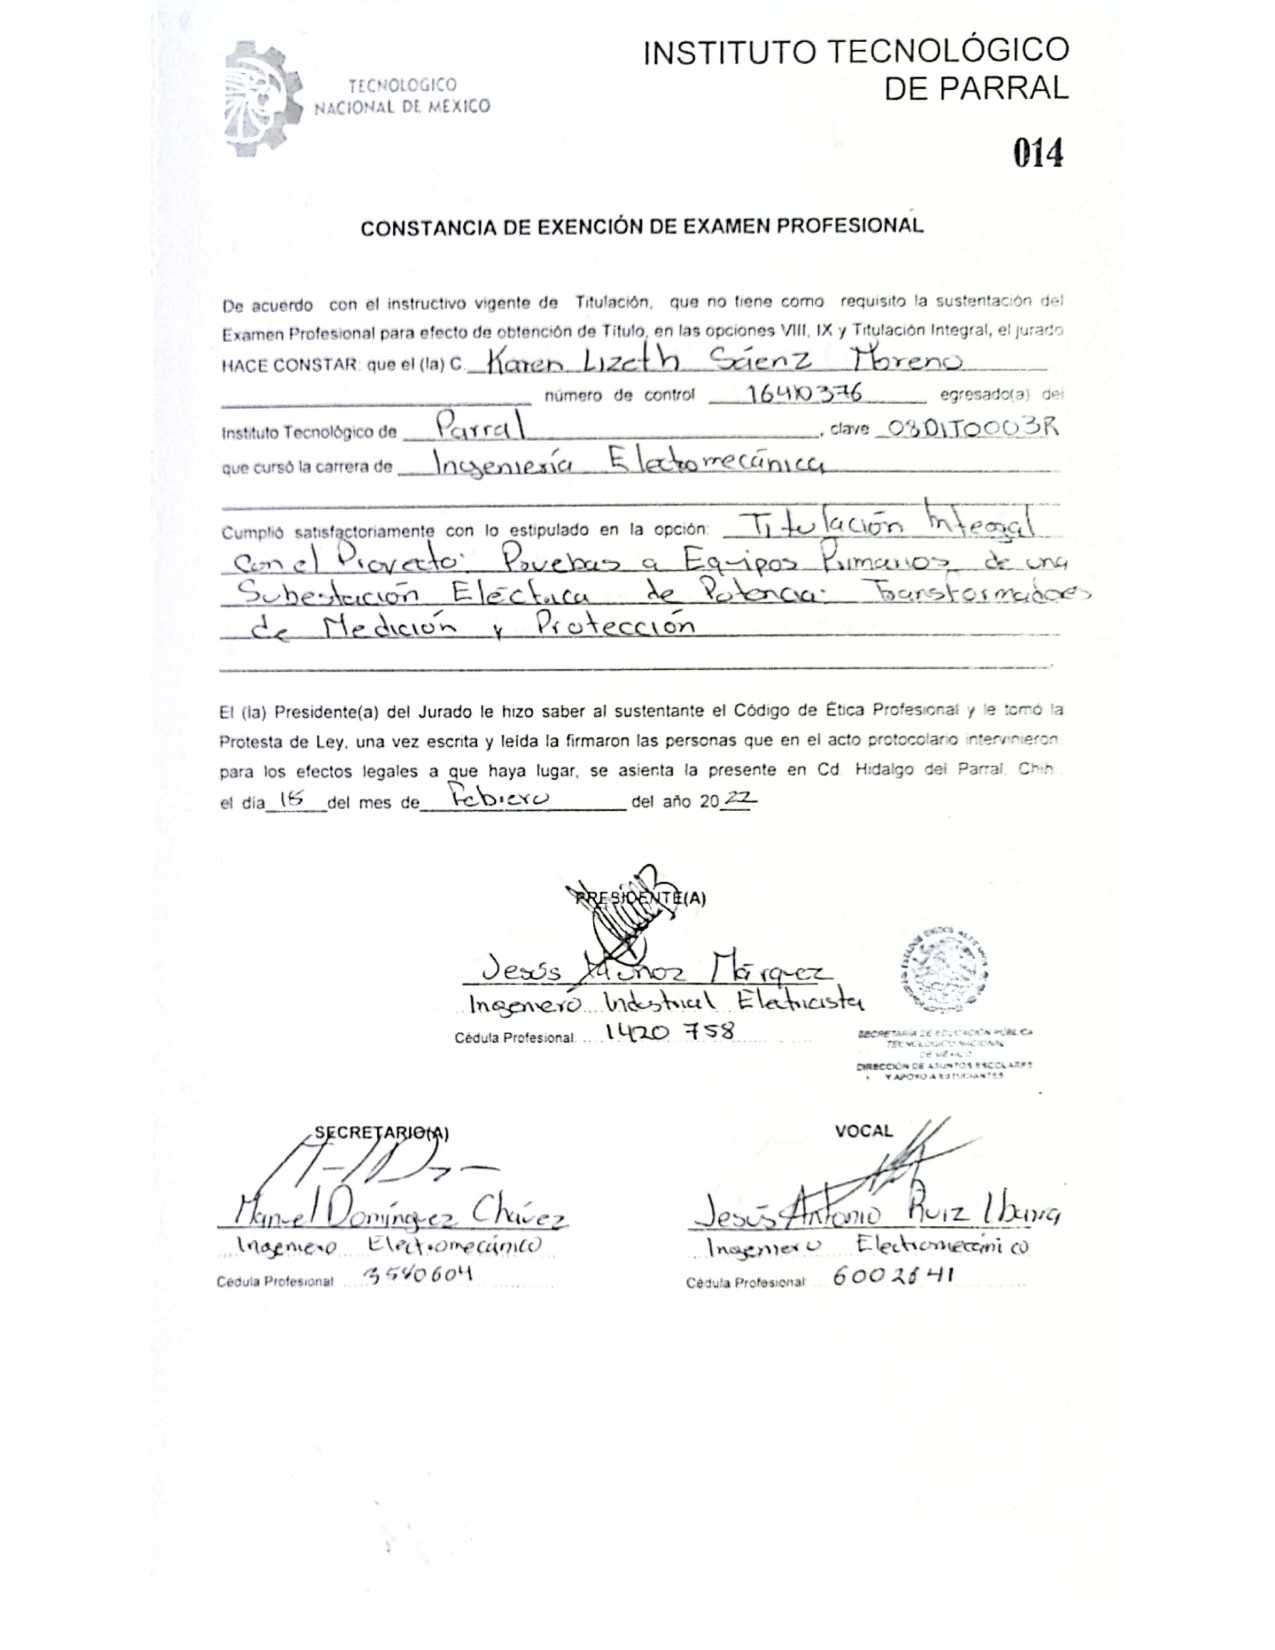 INSTITUTO TECNOLÓGICO
DE PARRAL
TECNOLOGICO
NACIONAL DE MEXICO
014
CONSTANCIA DE EXENCIÓN DE EXAMEN PROFESIONAL
De acuerdo con el instructivo vigente de Titulación, que no tiene como requisito la sustentación del
Examen Profesional para efecto de obtención de Título, en las opciones VIII, IX y Titulación Integral, el jurado
HACE CONSTAR: que el (la) C. Karen Lizeth Sáenz Moreno
número de control 16410376 egresado(a) del
Instituto Tecnológico de Parral, clave 08DIT0003R
que cursó la carrera de Ingeniería Electromecánica
Cumplió satisfactoriamente con lo estipulado en la opción: Titulación Integral
Con el Proyecto: Pruebas a Equipos Primarios de una
Subestación Eléctrica de Potencia: Transformadores
de Medición y Protección
El (la) Presidente(a) del Jurado le hizo saber al sustentante el Código de Ética Profesional y le tomó la
Protesta de Ley, una vez escrita y leída la firmaron las personas que en el acto protocolario intervinieron
para los efectos legales a que haya lugar, se asienta la presente en Cd. Hidalgo del Parral, Chih.
el día 15 del mes de Febrero del año 2022
PRESIDENTE(A)
Jesús Muñoz Márquez
Ingeniero Industrial Electricista
Cédula Profesional: 1420758
SECRETARIA DE EDUCACIÓN PÚBLICA
TECNOLÓGICO NACIONAL
DE MÉXICO
DIRECCIÓN DE ASUNTOS ESCOLARES
Y APOYO A ESTUDIANTES
SECRETARIO(A)
Manuel Domínguez Chávez
Ingeniero Electromecánico
Cédula Profesional 3540604
VOCAL
Jesús Antonio Ruiz Ibarra
Ingeniero Electromecánico
Cédula Profesional: